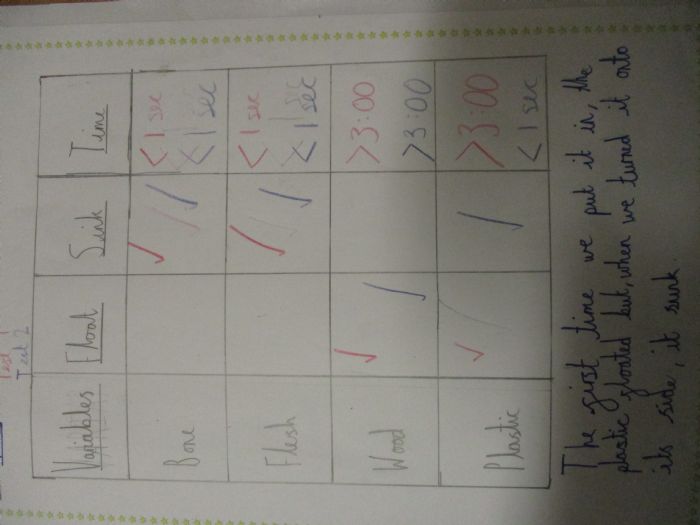 Test 1
Test 2
Variables Float Sink Time
Bone ✓ ✓ <1 sec <1 sec
Flesh ✓ ✓ <1 sec <1 sec
Wood ✓ ✓ >3:00 >3:00
Plastic ✓ ✓ >3:00 <1 sec
The first time we put it in, the
plastic floated but, when we turned it onto
its side, it sunk.